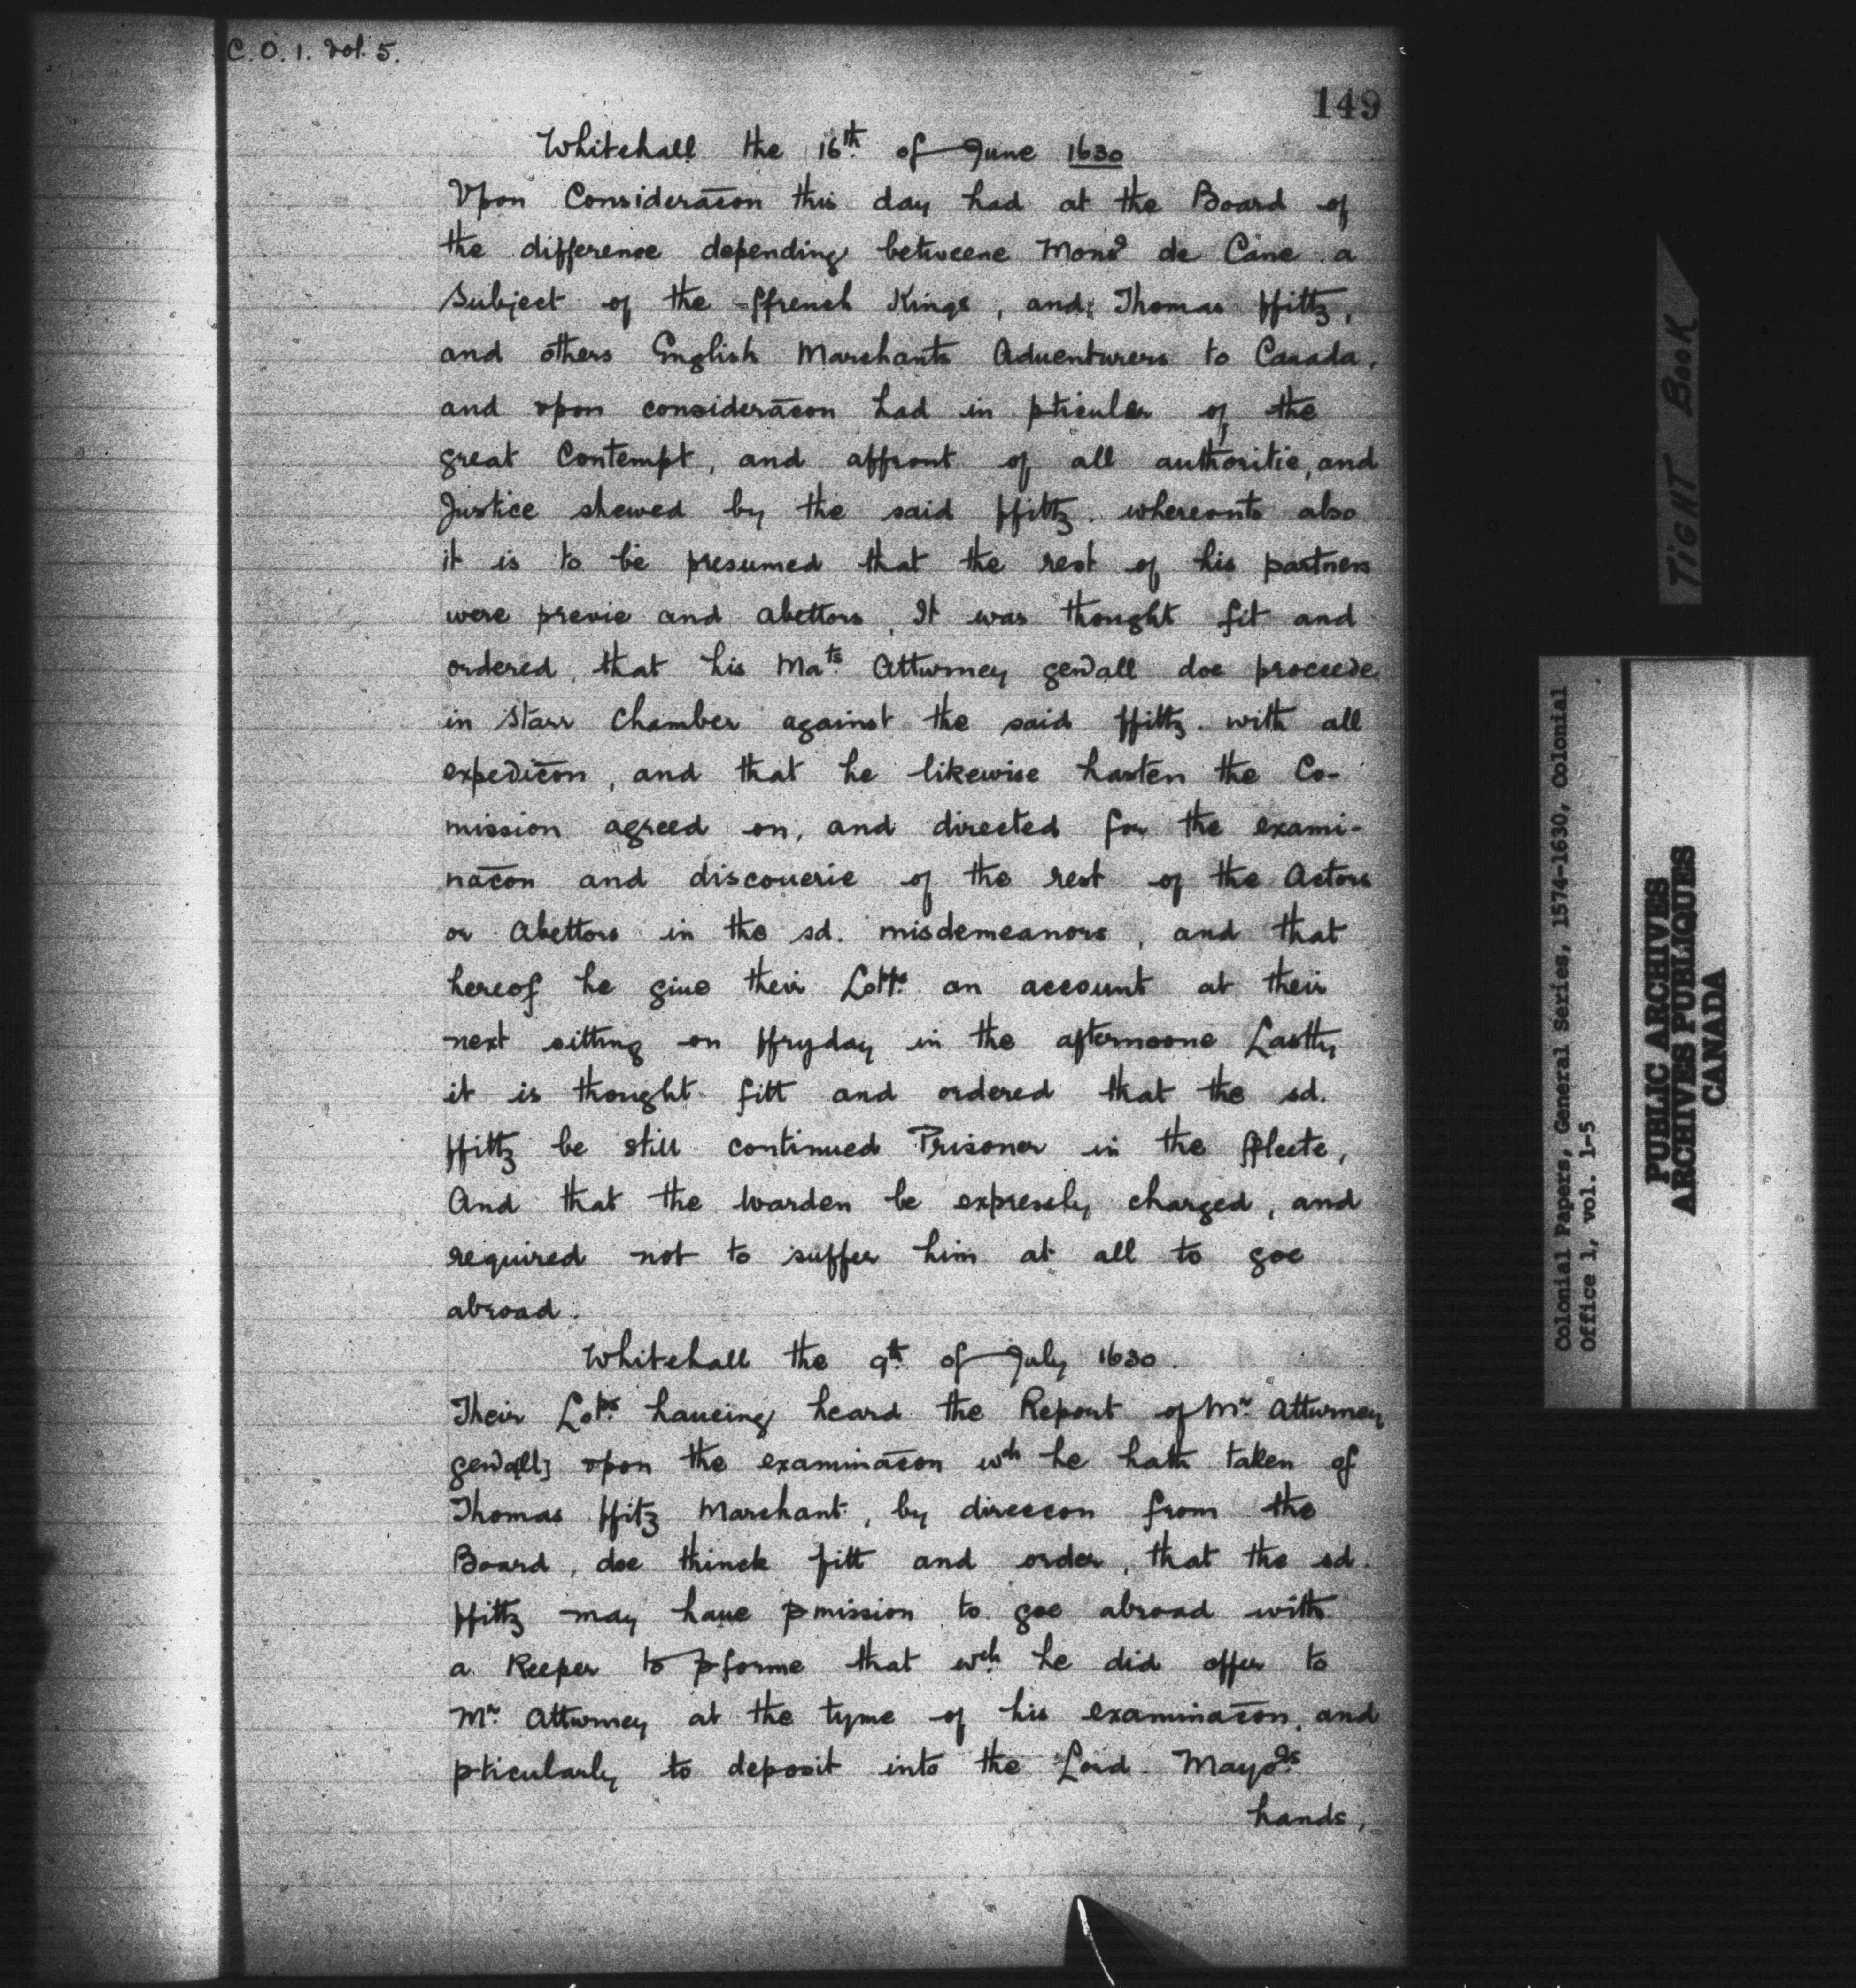 C.O.1. Vol. 5.
149
Whitehall the 16th of June 1630
Vpon Consideracōn this day had at the Board of
the difference depending betweene Monsr de Cane a
Subject of the ffrench Kings, and Thomas ffittz,
and others English Marchants Aduenturers to Canada,
and vpon consideracōn had in pticular of the
great Contempt, and affront of all authoritie, and
Justice shewed by the said ffittz. whereonto also
it is to be presumed that the rest of his partners
were previe and abettors. It was thought fit and
ordered, that his Mats Atturney genall doe proceede
in Starr Chamber against the said ffittz. with all
expedicōn, and that he likewise hasten the Co-
mission agreed on, and directed for the exami-
nacōn and discouerie of the rest of the Actors
or Abettors in the sd. misdemeanors, and that
hereof he giue their Lopps an account at their
next sitting on ffryday in the afternoone Lastly
it is thought fitt and ordered that the sd.
ffittz be still continued Prisoner in the ffleete,
And that the warden be expressly charged, and
required not to suffer him at all to goe
abroad.
Whitehall the 9th of July 1630.
Their Lops haueing heard the Report of Mr Atturney
genall] vpon the examinacōn wch he hath taken of
Thomas ffitz Marchant, by direccon from the
Board, doe thinck fitt and order, that the sd.
ffittz may haue pmission to goe abroad with
a Keeper to pforme that wch he did offer to
Mr Atturney at the tyme of his examinacōn, and
pticularly to deposit into the Lord Mayors
hands,
TIGHT BOOK
Colonial Papers, General Series, 1574-1630, Colonial
Office 1, vol. 1-5
PUBLIC ARCHIVES
ARCHIVES PUBLIQUES
CANADA